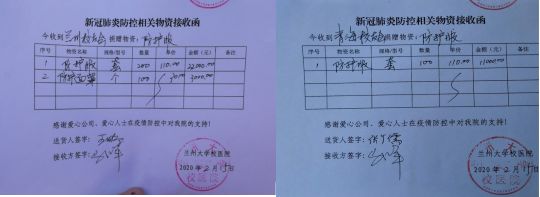 新冠肺炎防控相关物资接收函
今收到兰州校友会捐赠物资：防护服
序号 物资名称 规格/型号 数量 单价 金额（元） 备注
1 防护服 套 200 110.00 22000.00
2 防护面罩 个 100 30.00 3000.00
感谢爱心公司、爱心人士在疫情防控中对我院的支持！
送货人签字：
接收方签字：
兰州大学校医院
2020年2月15日
新冠肺炎防控相关物资接收函
今收到青海校友会捐赠物资：防护服
序号 物资名称 规格/型号 数量 单价 金额（元） 备注
1 防护服 套 100 110.00 11000.00
感谢爱心公司、爱心人士在疫情防控中对我院的支持！
送货人签字：
接收方签字：
兰州大学校医院
2020年2月15日